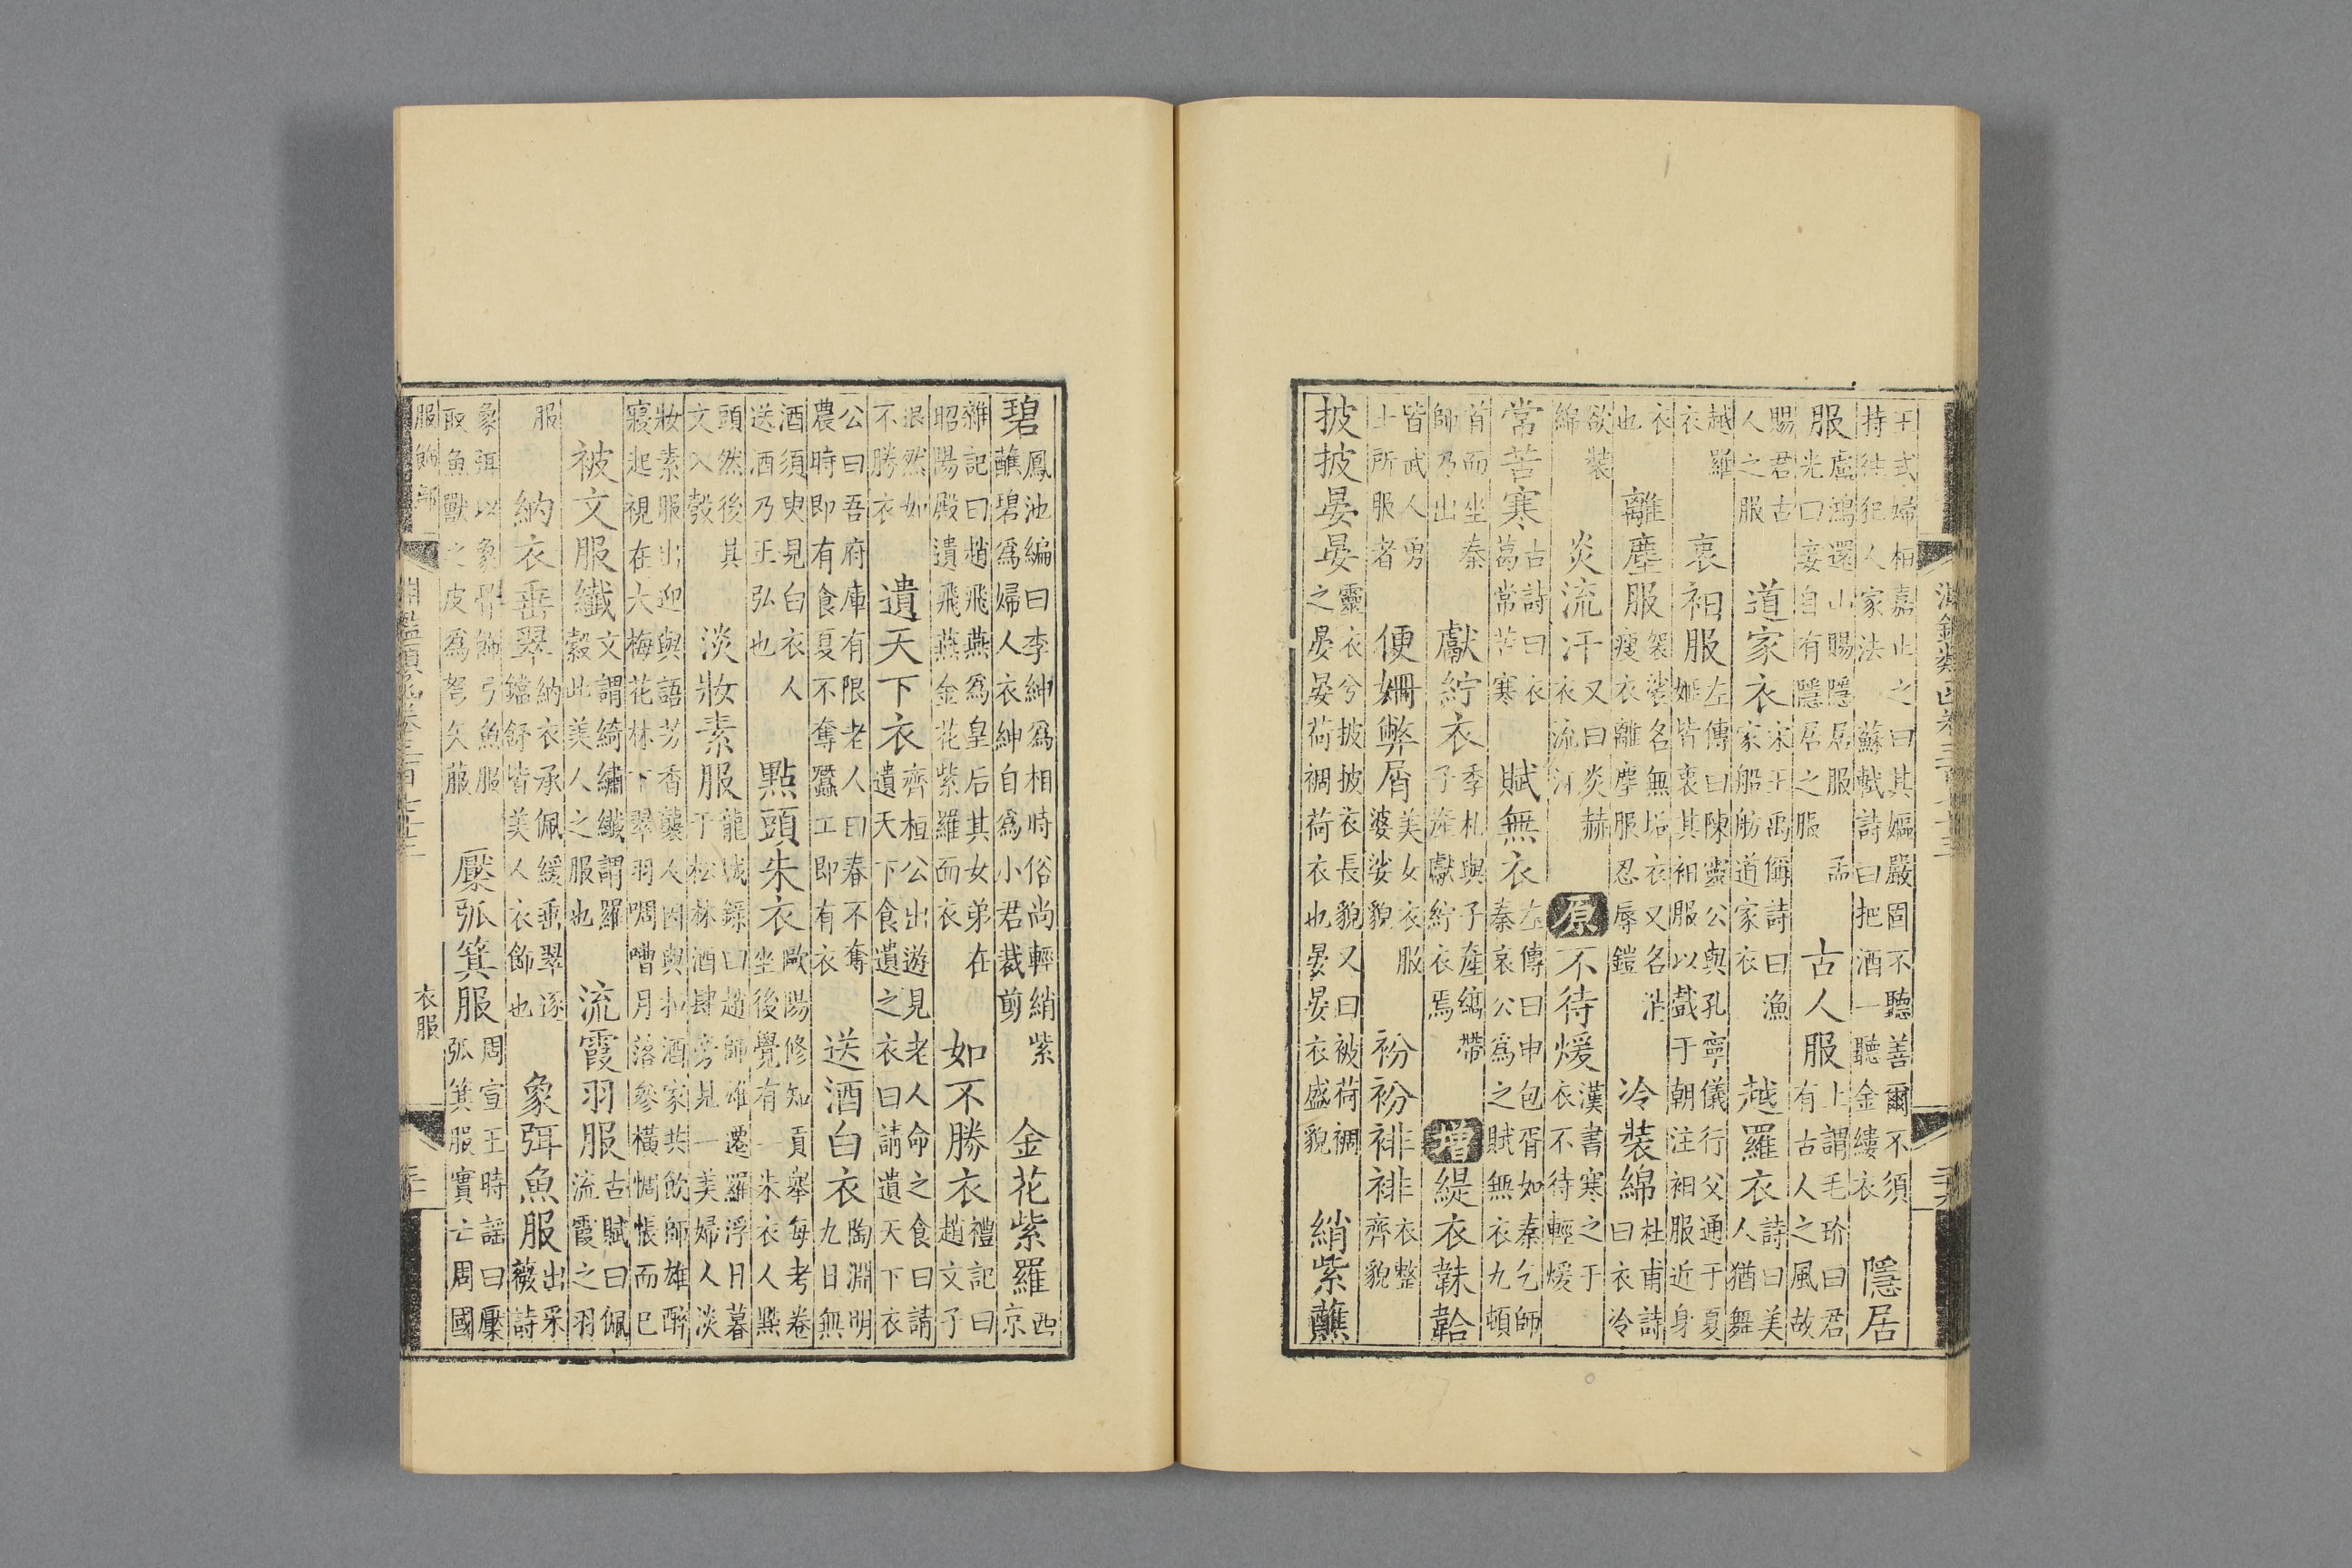 王式婦相嘉止之曰其嫗嚴固不聽善爾不須
持往犯人家法　蘇軾詩曰把酒一聽金縷衣　隱居
服盧鴻還山賜隱居服
光曰妾自有隱居之服　孟　古人服上謂毛玠曰君
有古人之風故
賜君古
人之服　道家衣宋王禹偁詩曰漁
家船舫道家衣　越羅衣詩曰美
人猶舞
越羅
衣　衷衵服左傳曰陳靈公與孔寧儀行父通于夏
姬皆衷其衵服以戲于朝注衵服近身
衣
也　離塵服袈裟名無垢衣又名
瘦衣離塵服忍辱鎧　冷裝綿杜甫詩
曰衣冷
欲裝
綿　炎流汗又曰炎赫
衣流汗　原　不待煖漢書寒之于
衣不待輕煖
常苦寒古詩曰衣
葛常苦寒　賦無衣左傳曰申包胥如秦乞師
秦哀公為之賦無衣九頓
首而坐秦
師乃出　獻紵衣季札與子產縞帶
子產獻紵衣焉　增　緹衣韎韐
皆武人勇
士所服者　便姍弊屑美女衣服
婆娑貌　衯衯裶裶衣整
齊貌
披披晏晏靈衣兮披披衣長貌又曰被荷裯
之晏晏荷裯荷衣也晏晏衣盛貌　綃紫蘸
碧鳳池編曰李紳為相時俗尚輕綃紫
蘸碧為婦人衣紳自為小君裁剪　金花紫羅西
京
雜記曰趙飛燕為皇后其女弟在
昭陽殿遺飛燕金花紫羅面衣　如不勝衣禮記曰
趙文子
退然如
不勝衣　遺天下衣齊桓公出遊見老人命之食曰請
遺天下食遺之衣曰請遺天下衣
公曰吾府庫有限老人曰春不奪
農時即有食夏不奪蠶工即有衣　送酒白衣陶淵明
九日無
酒須臾見白衣人
送酒乃王弘也　點頭朱衣歐陽修知貢舉每考卷
坐後覺有一朱衣人點
頭然後其
文入彀　淡妝素服龍城錄曰趙師雄遷羅浮日暮
于松林酒肆旁見一美婦人淡
妝素服出迎與語芳香襲人因與扣酒家共飲師雄醉
寢起視在大梅花林下翠羽啁嘈月落參橫惆悵而已
被文服纖文謂綺繡纖謂羅
縠此美人之服也　流霞羽服古賦曰佩
流霞之羽
服　納衣垂翠納衣承佩緩垂翠逐
鐺舒皆美人衣飾也　象弭魚服出采
薇詩
象弭以象骨飾弓魚服
取魚獸之皮為弩矢菔　檿弧箕服周宣王時謡曰檿
弧箕服實亡周國
服飾部　淵鑑類函卷三百七十三　衣服